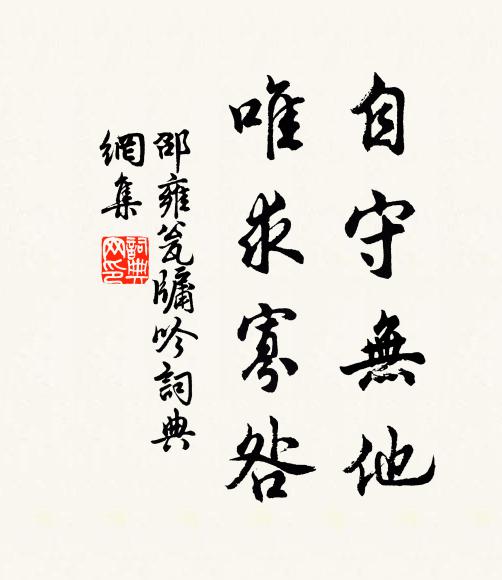 自守無他
唯求寡咎
邵雍瓮牖吟詞典
網集
詞典网印